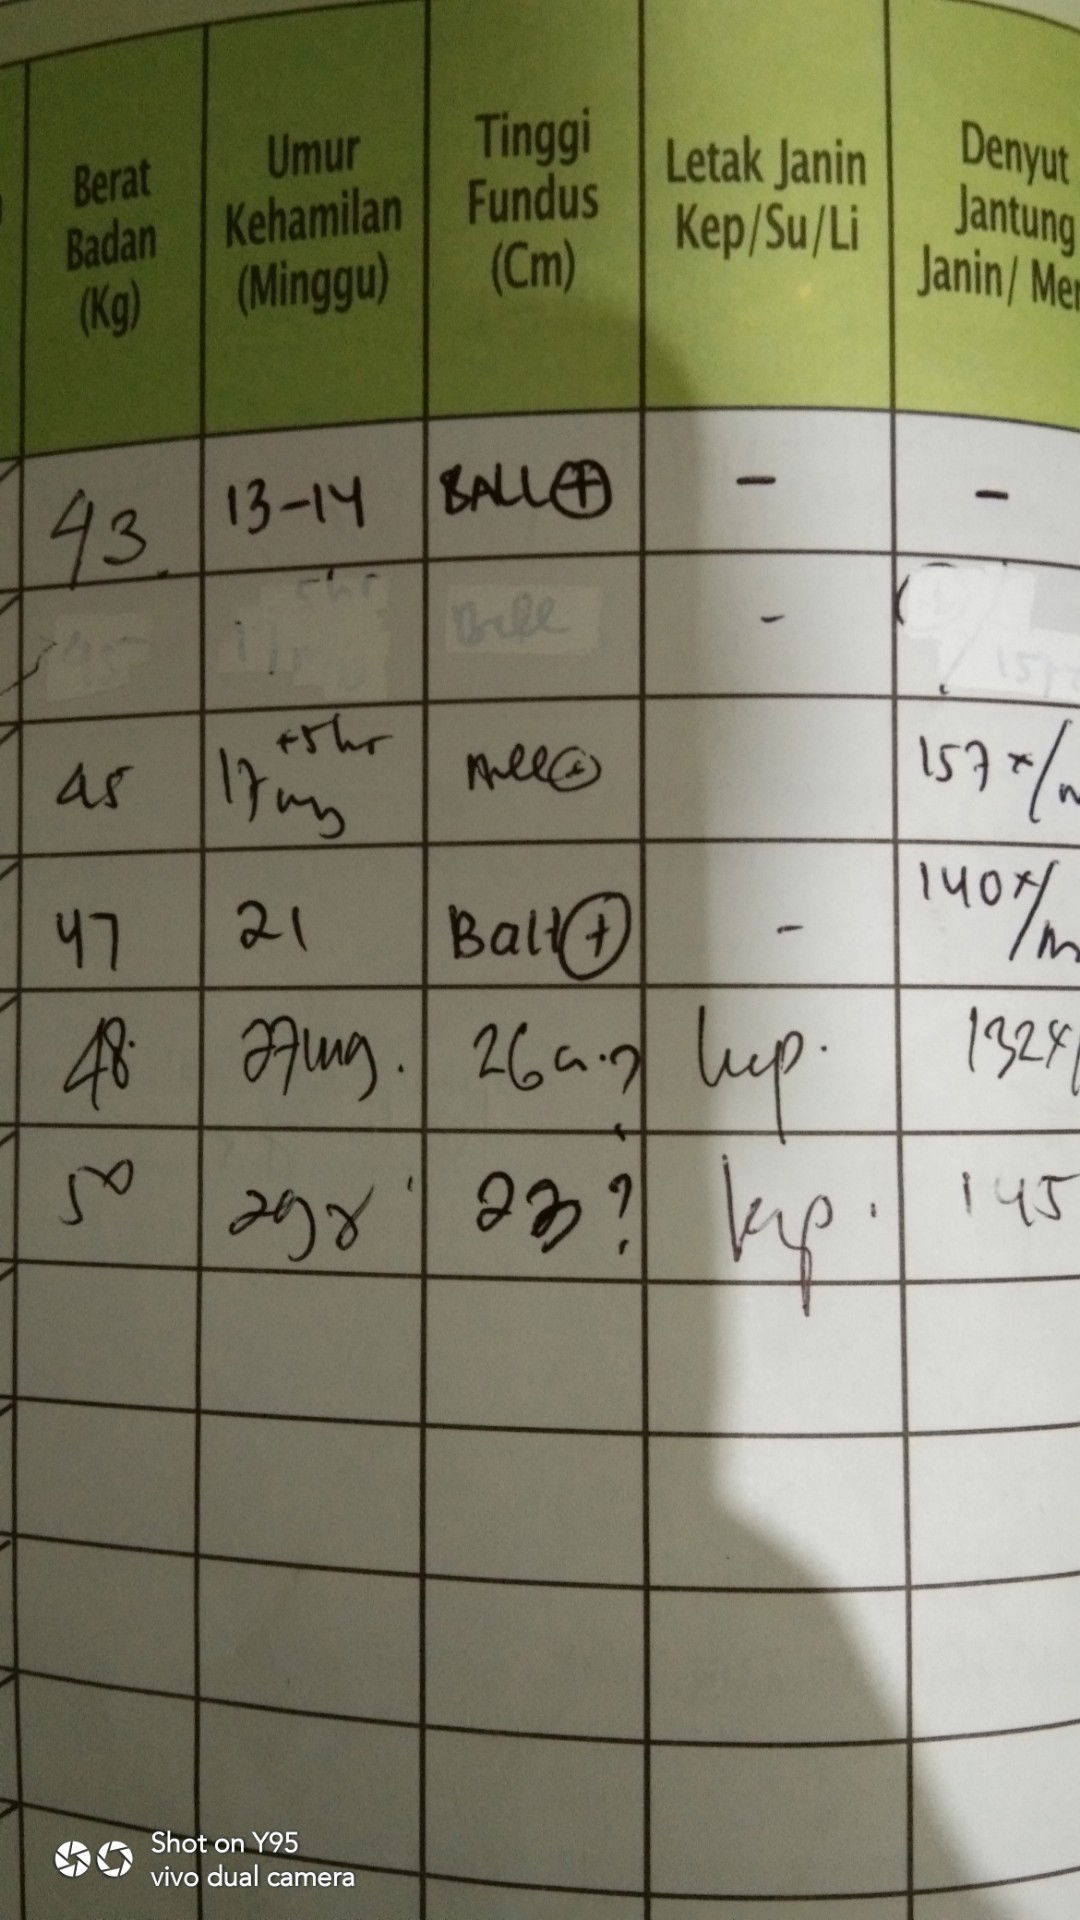 Berat Badan (Kg)
Umur Kehamilan (Minggu)
Tinggi Fundus (Cm)
Letak Janin Kep/Su/Li
Denyut Jantung Janin/ Me
43 13-14 BALL(+) - -
-
45 17 mg +5hr 157x/m
47 21 Ball(+) - 140x/m
48 27mg. 26 kep. 132x/
50 29 ? kep. 145
Shot on Y95
vivo dual camera